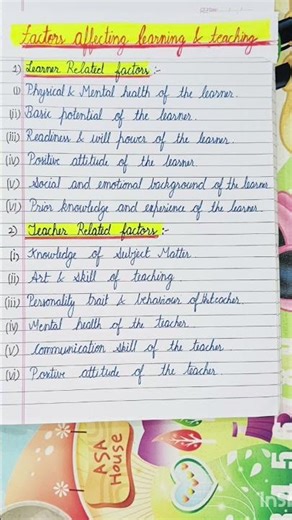 Factors affecting learning & teaching
1) Learner Related factors :-
(i) Physical & Mental health of the learner.
(ii) Basic potential of the learner.
(iii) Readiness & will power of the learner.
(iv) Positive attitude of the learner.
(v) Social and emotional background of the learner
(vi) Prior knowledge and experience of the learner.
2) Teacher Related factors :-
(i) Knowledge of Subject Matter
(ii) Art & skill of teaching
(iii) Personality trait & behaviour of
(iv) Mental health of the teacher.
(v) Communication skill of the teacher
(vi) Positive attitude of the teacher
ASA
House